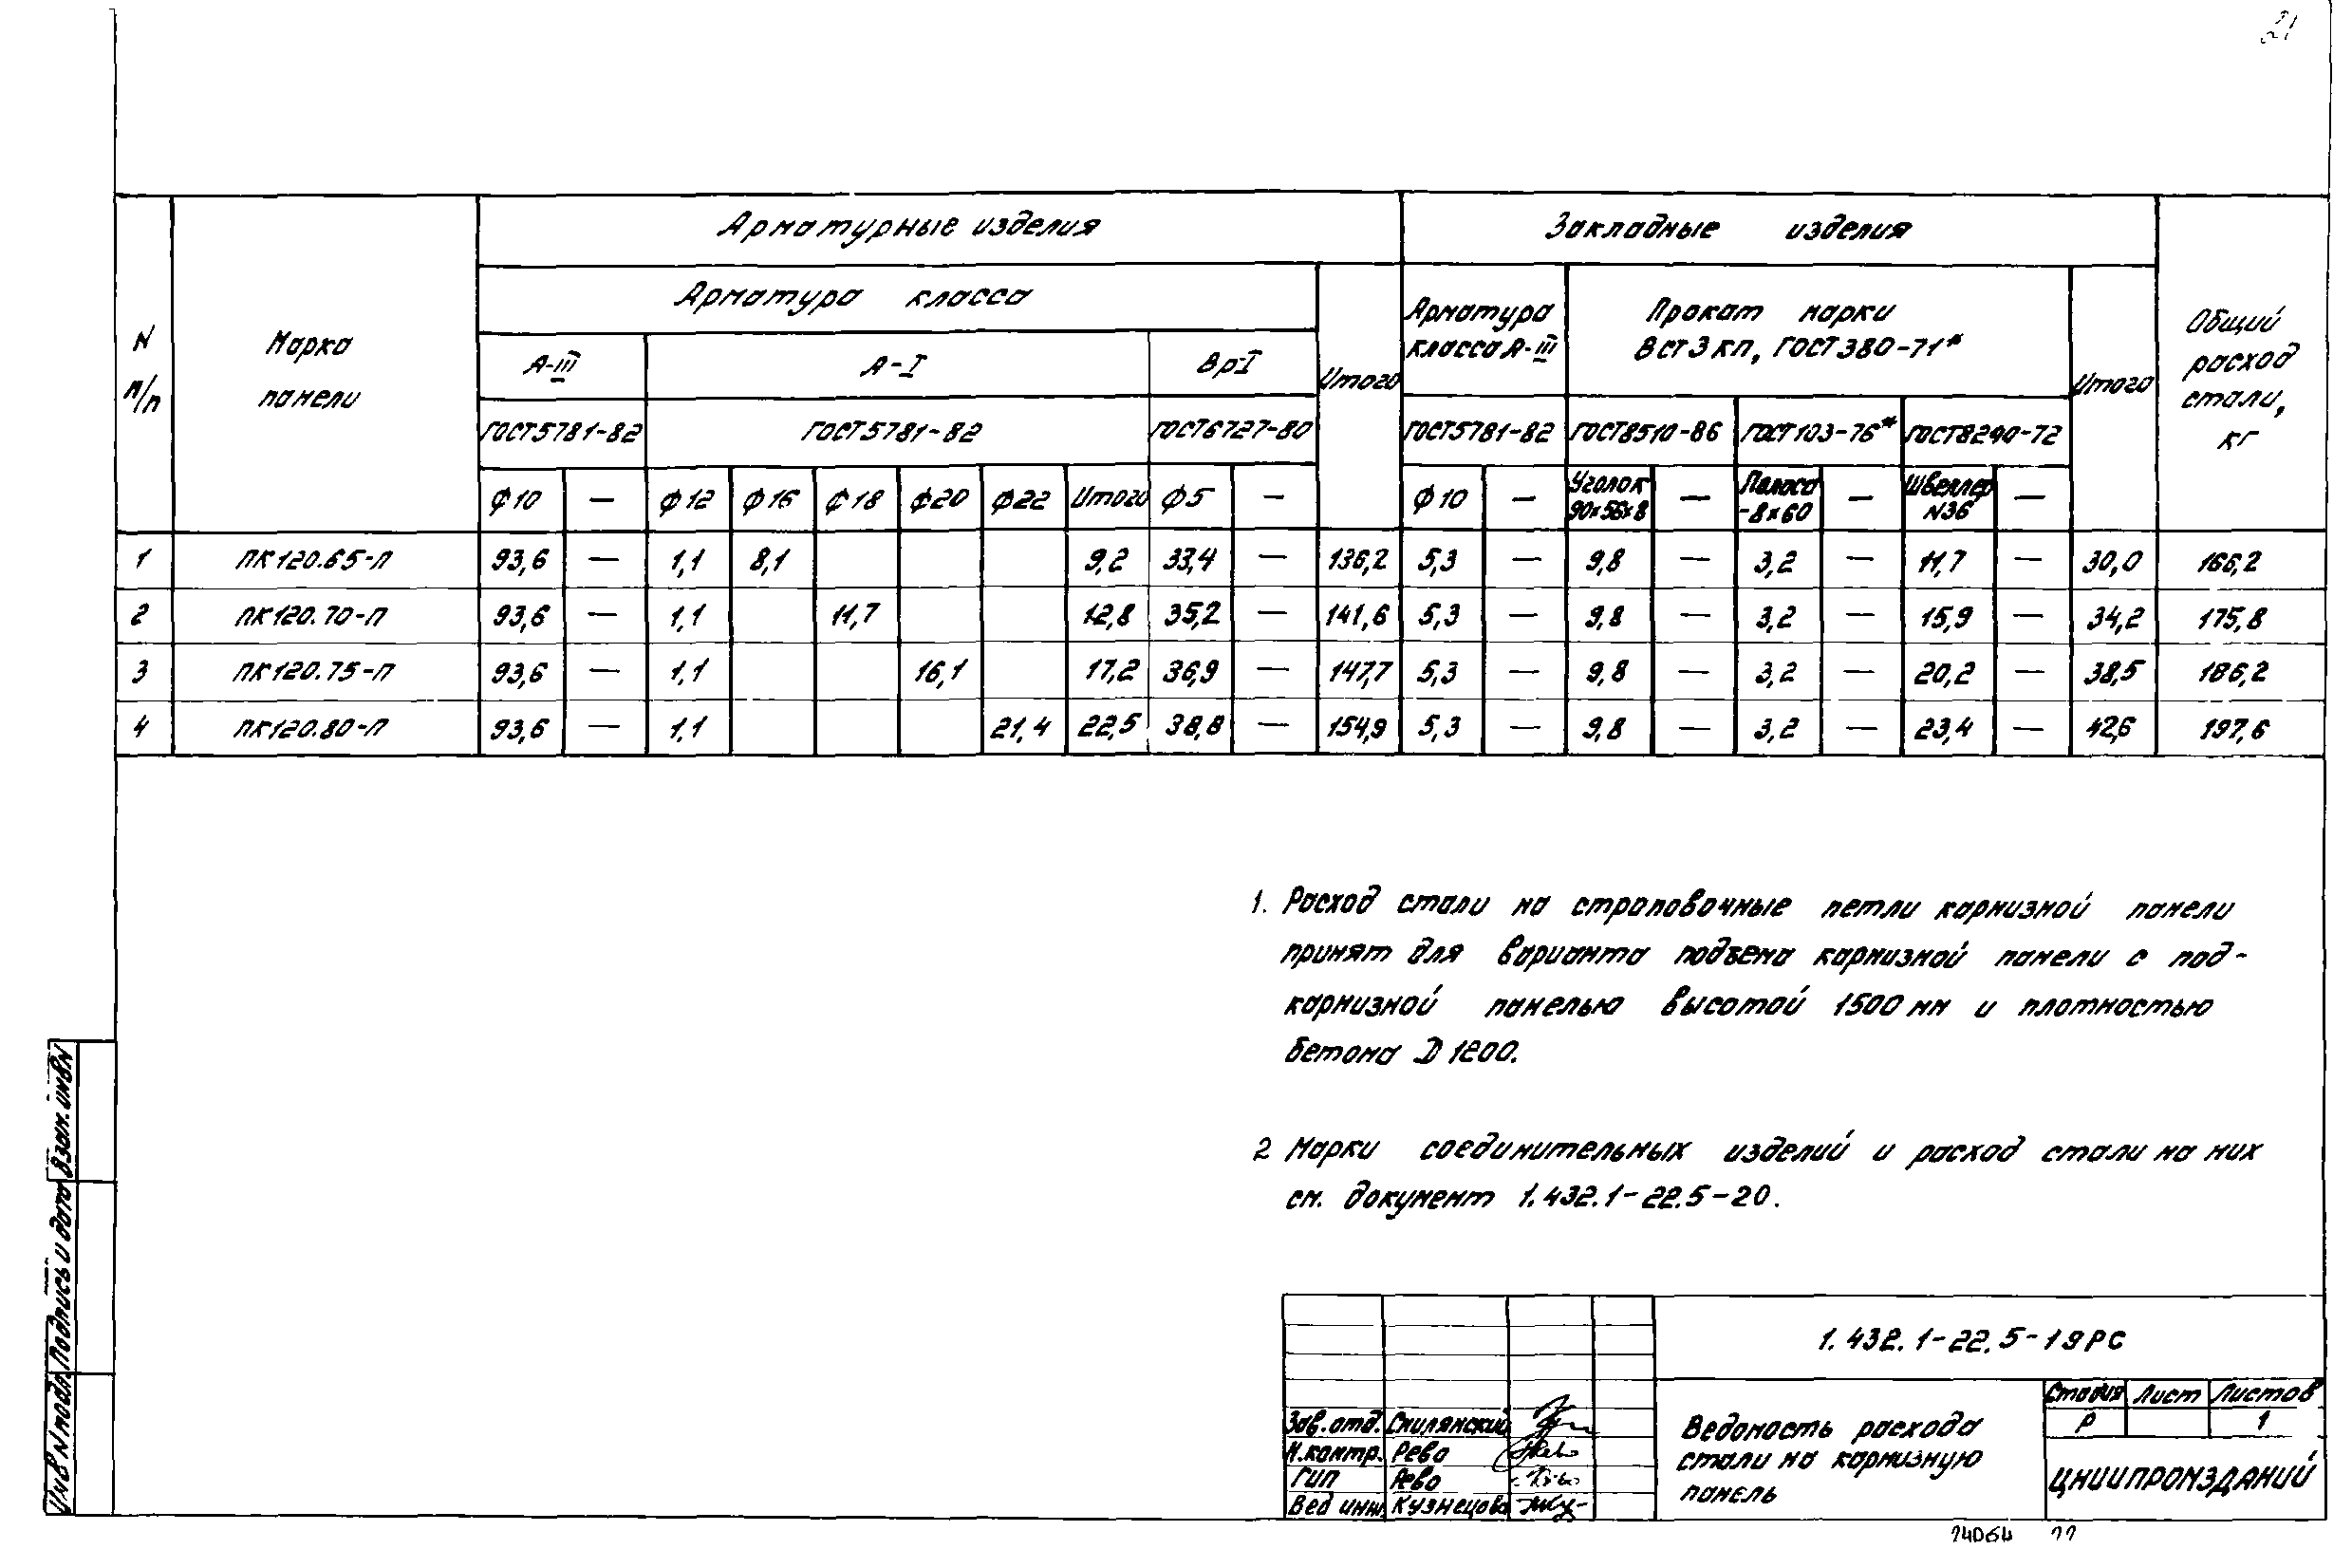 21
Арматурные изделия Закладные изделия
N п/п Марка панели Арматура класса Итого Арматура класса А-III Прокат марки ВСт3кп, ГОСТ380-71* Итого Общий расход стали, кг
А-III А-I Вр-I
ГОСТ5781-82 ГОСТ5781-82 ГОСТ6727-80 ГОСТ5781-82 ГОСТ8510-86 ГОСТ103-76* ГОСТ8240-72
ф10 — ф12 ф16 ф18 ф20 ф22 Итого ф5 — ф10 — Уголок 90×56×8 — Полоса -8×60 — Швеллер N36 —
1 ПК120.65-П 93,6 — 1,1 8,1 9,2 33,4 — 136,2 5,3 — 9,8 — 3,2 — 11,7 — 30,0 166,2
2 ПК120.70-П 93,6 — 1,1 11,7 12,8 35,2 — 141,6 5,3 — 9,8 — 3,2 — 15,9 — 34,2 175,8
3 ПК120.75-П 93,6 — 1,1 16,1 17,2 36,9 — 147,7 5,3 — 9,8 — 3,2 — 20,2 — 38,5 186,2
4 ПК120.80-П 93,6 — 1,1 21,4 22,5 38,8 — 154,9 5,3 — 9,8 — 3,2 — 23,4 — 42,6 197,6
1. Расход стали на строповочные петли карнизной панели
принят для варианта подъема карнизной панели с под-
карнизной панелью высотой 1500 мм и плотностью
бетона D 1200.
2 Марки соединительных изделий и расход стали на них
см. документ 1.432.1-22.5-20.
Инв N подл. Подпись и дата Взам. инв N
1.432.1-22.5-19РС
Зав. отд. Смилянский
Н.контр. Рево
ГИП Рево
Вед инж. Кузнецова
Ведомость расхода
стали на карнизную
панель
Стадия Лист Листов
Р 1
ЦНИИПРОМЗДАНИЙ